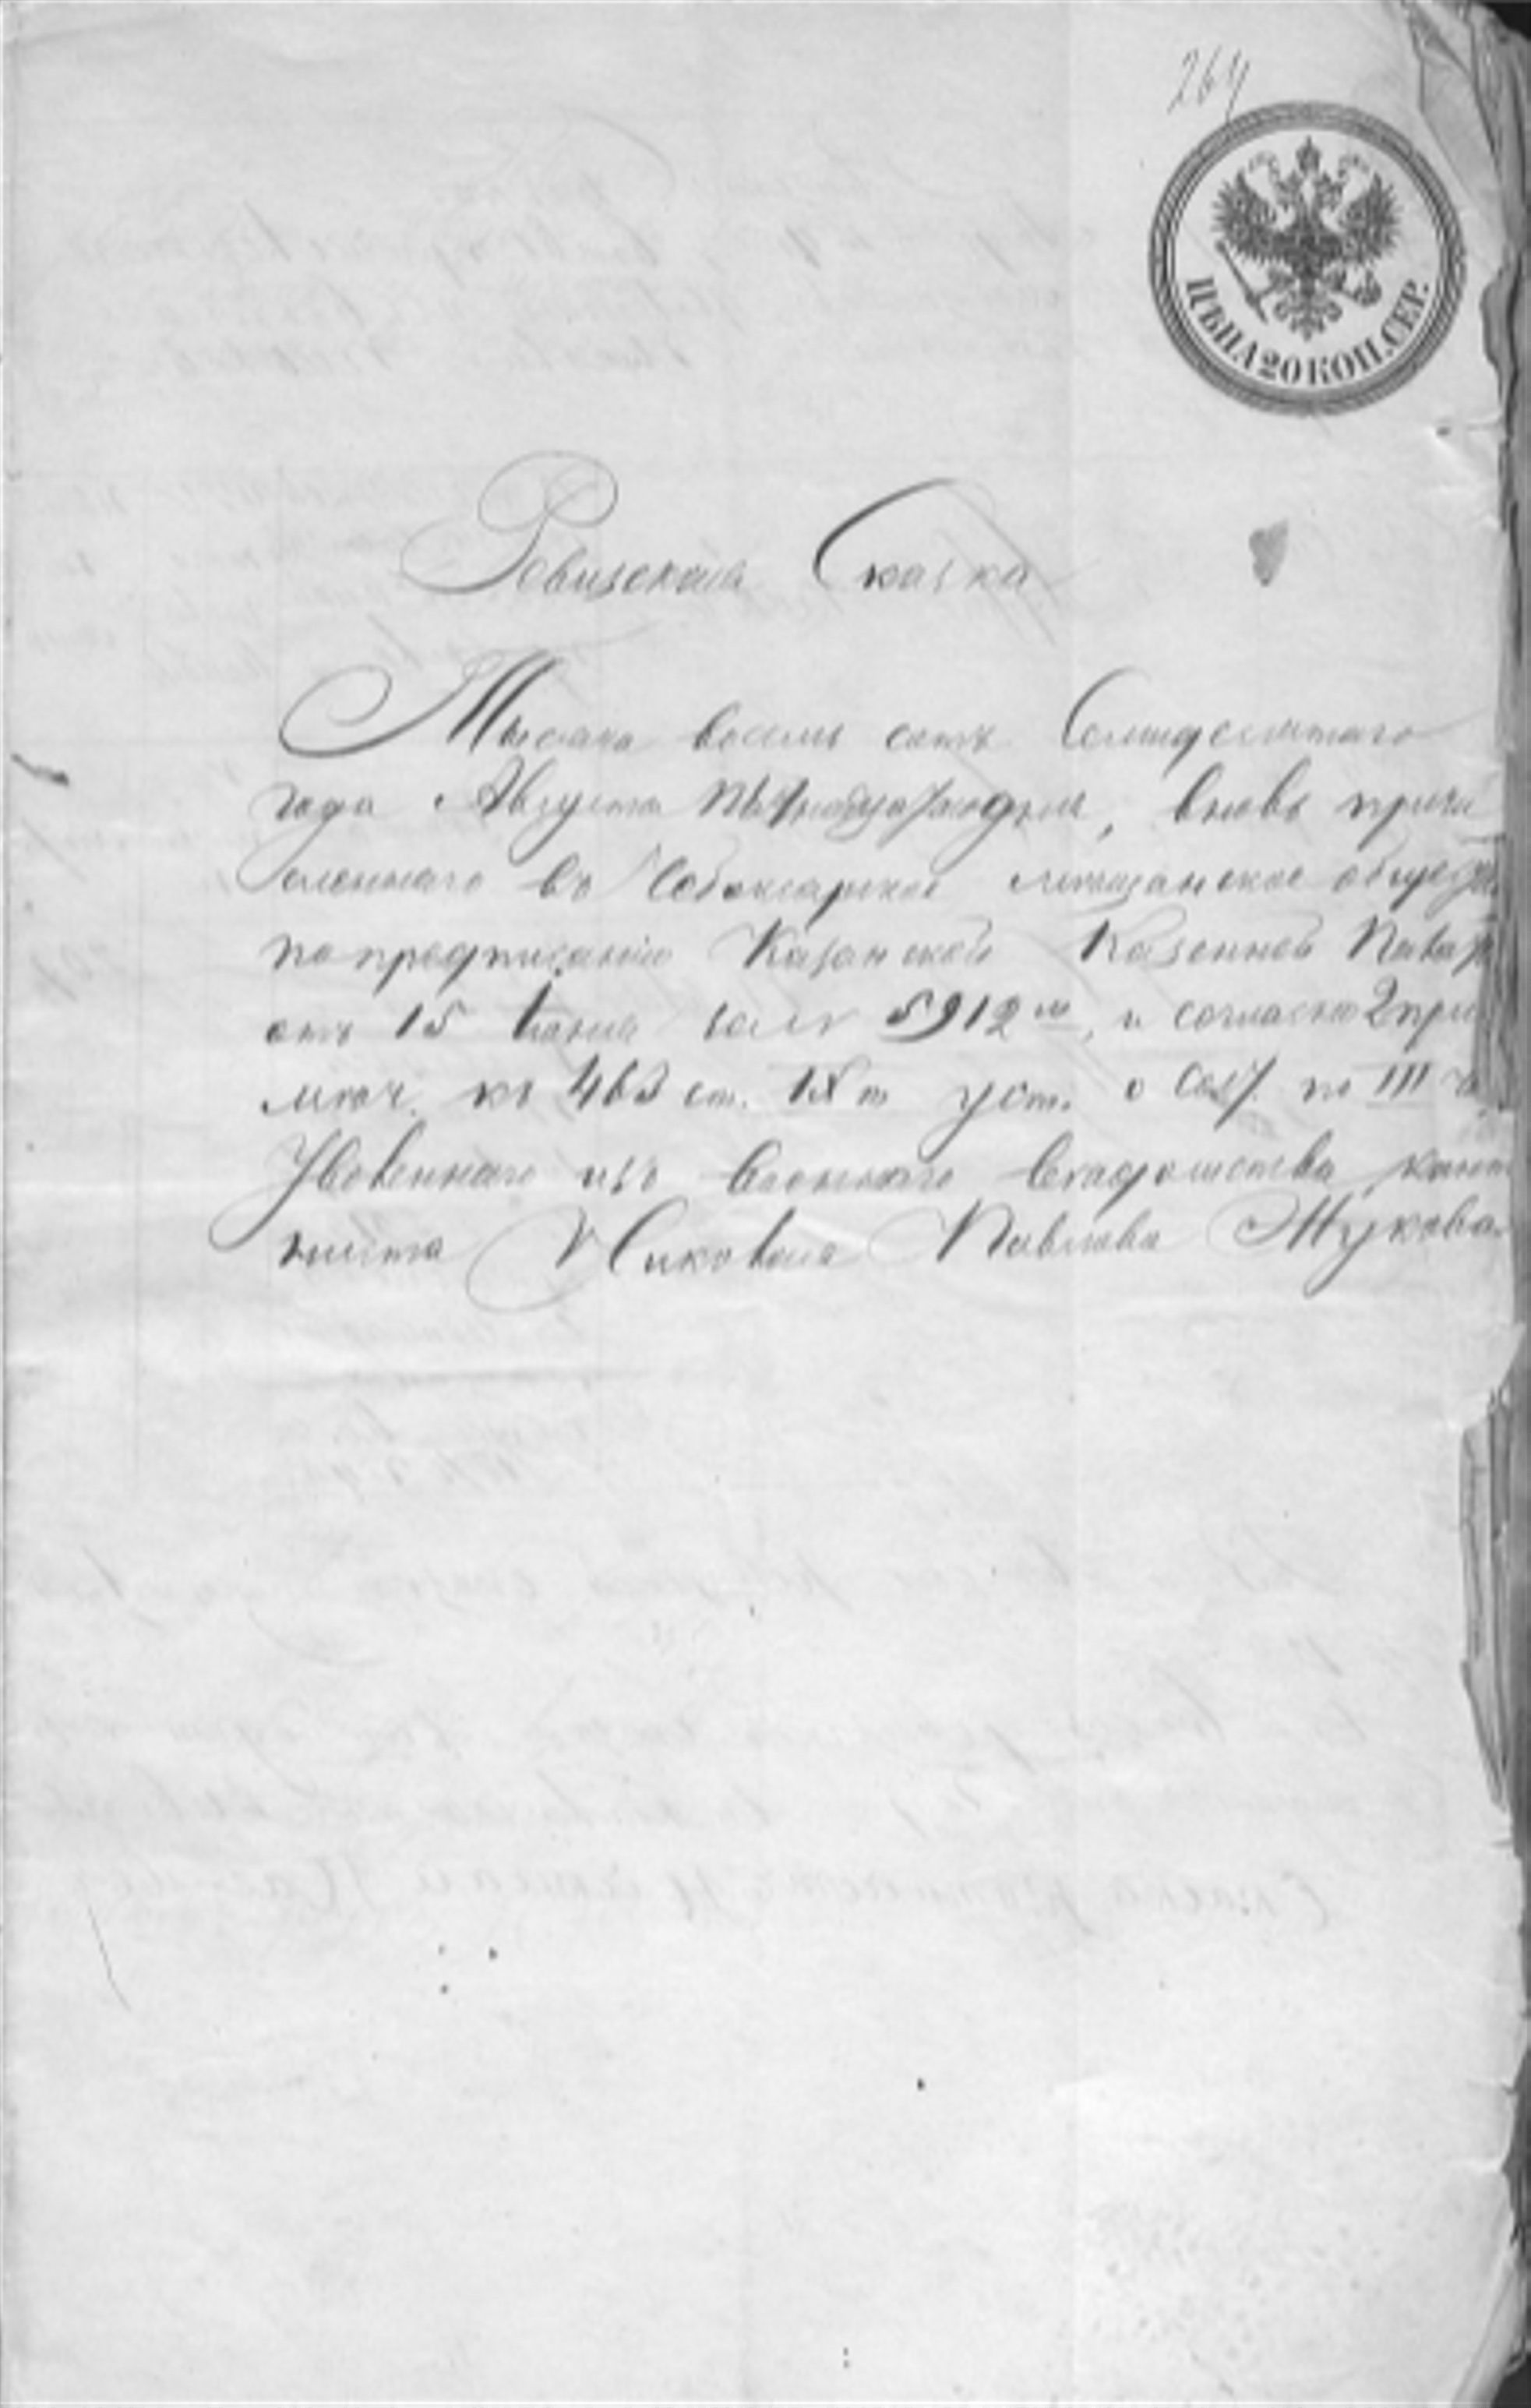 264
ЦѢНА 20 КОП. СЕР.
Ревизская Сказка
Тысяча восемь сотъ Семидесятаго
года Августа пятнадцатаго дня, вновь причи
сленнаго въ Чебоксарское мѣщанское общество
по предписанію Казанской Казенной Палаты
отъ 15 Іюня за № 5912 м, и согласно 2 при
мѣч. къ 463 ст. IX т уст. о сост. по III
Уволеннаго изъ военнаго вѣдомства, канто
ниста Николая Павлова Жукова.